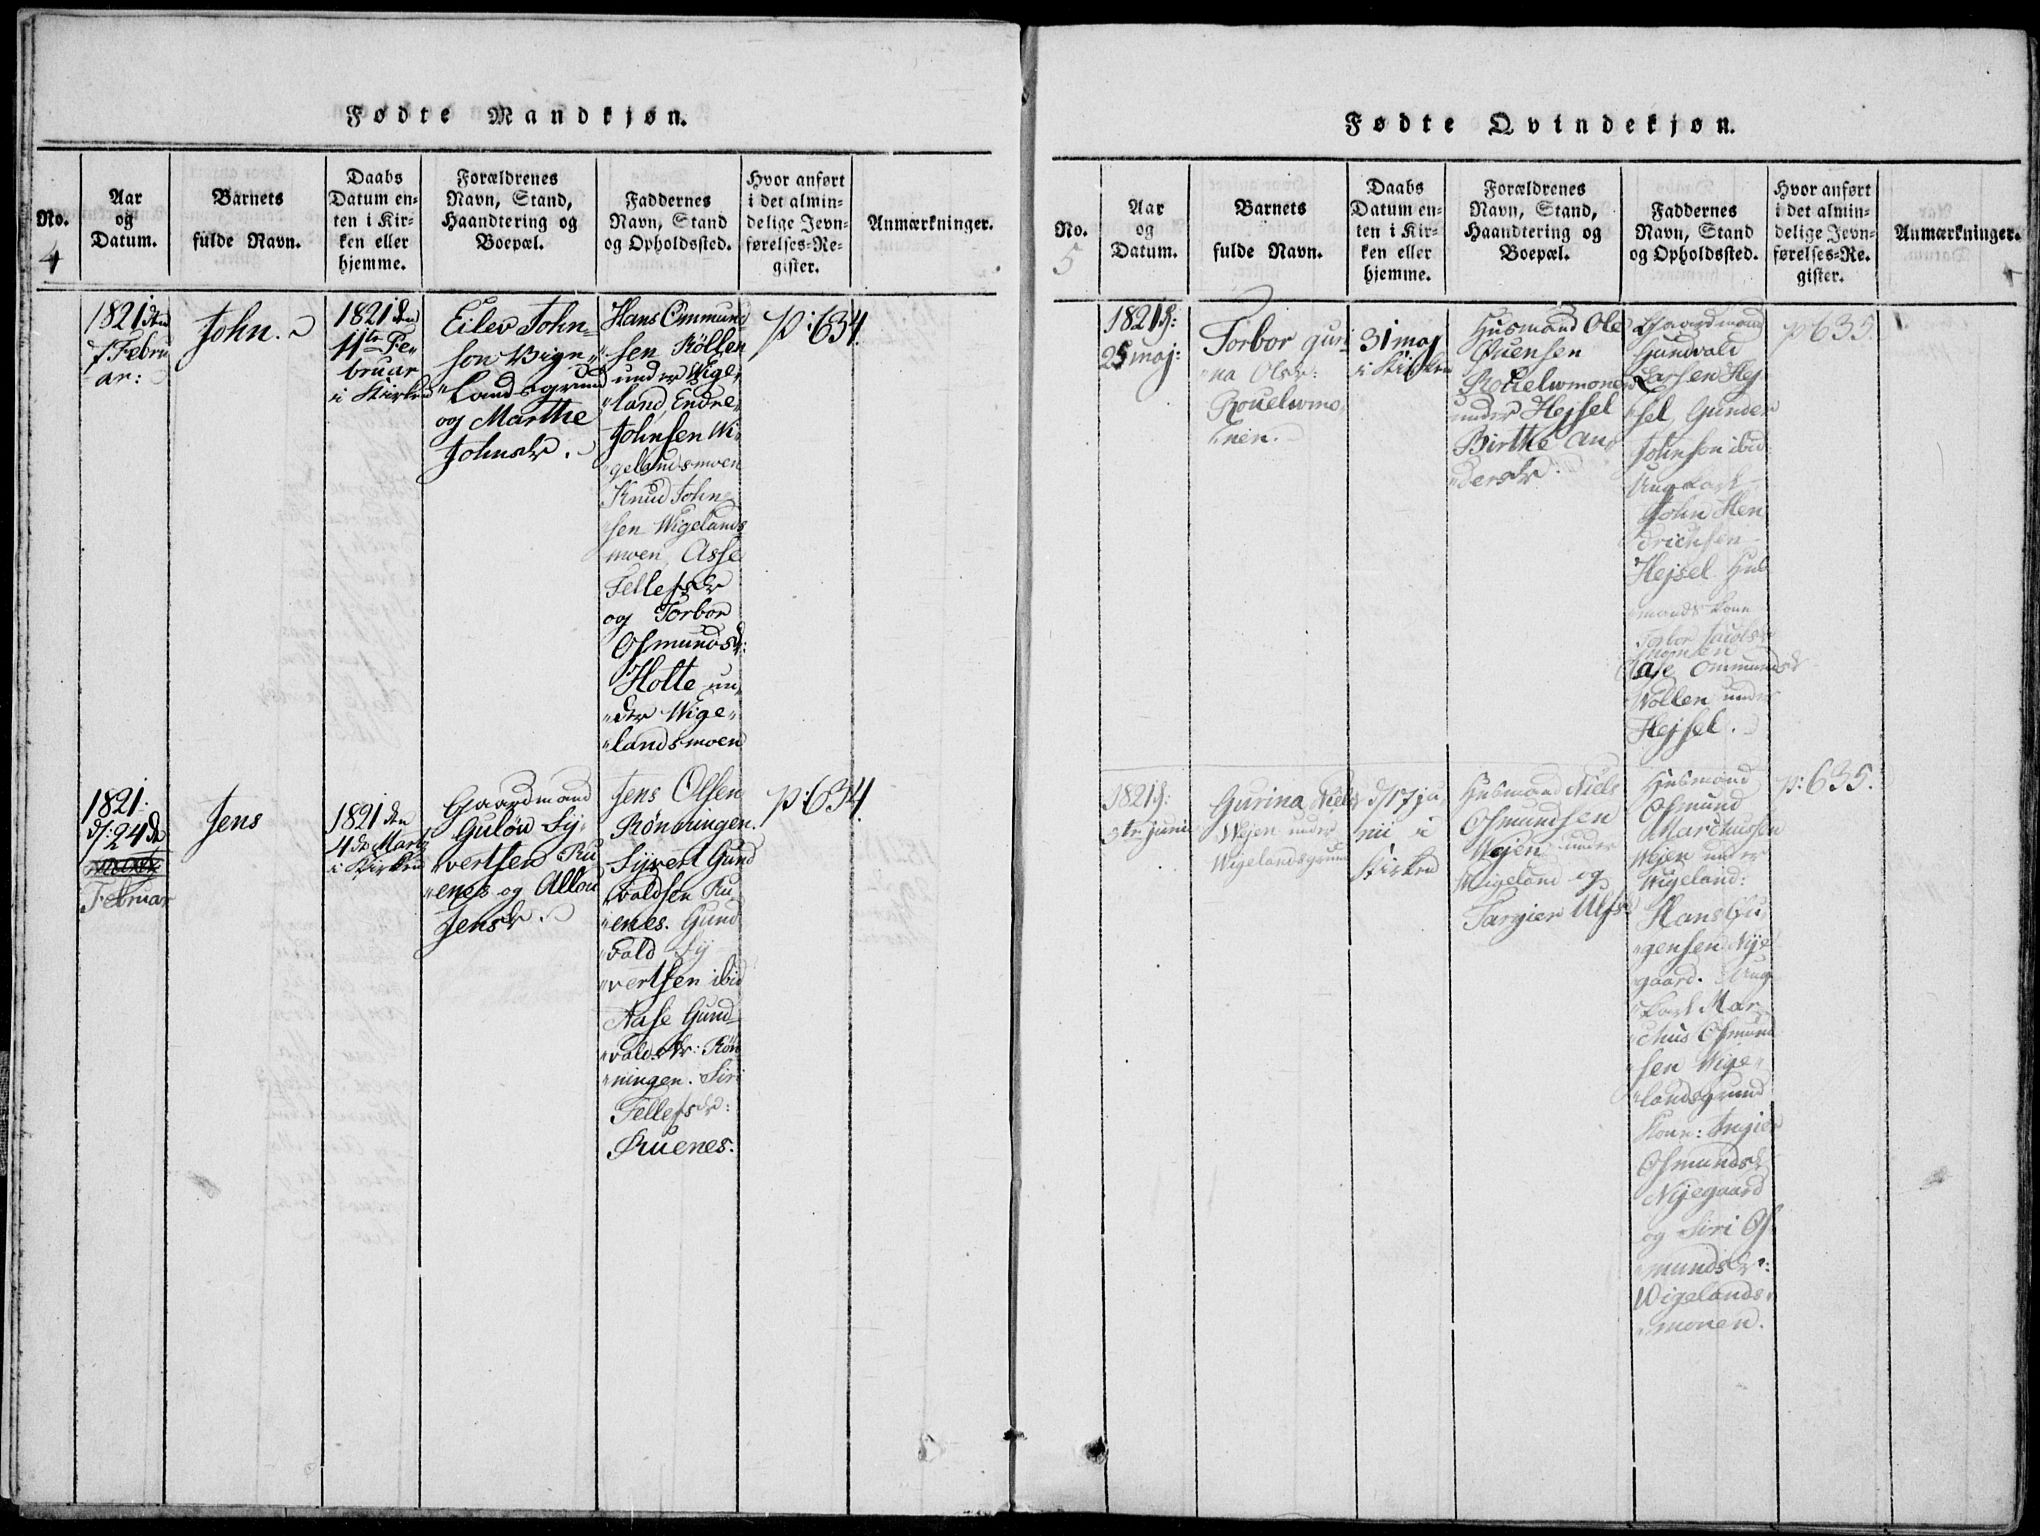 Fødte Mandkjøn.
No.
4
Aar
og
Datum.
Barnets
fulde Navn.
Daabs
Datum en-
ten i Kir-
ken eller
hjemme.
Forældrenes
Navn, Stand,
Haandtering og
Boepæl.
Faddernes
Navn, Stand
og Opholdssted.
Hvor anført
i det almin-
delige Jevn-
førelses-Re-
gister.
Anmærkninger.
1821 den
7 Febru
ar:
John.
1821 den
11te Fe„
bruar
i Kirken
Eilev John„
son Vige„
„landsgrund
og Marthe
Johnsdr.
Hans Ommund
sen Röllen
under Wige„
„land, Endre
Johnsen Wi„
gelandsmoen
Knud John„
sen Wigelands
moen, Asse
Tellefsdr
og Torbor
Osmundsdr:
Holte un„
„der Wige„
„landsmoen
p: 634.
1821:
d: 24de
Februar
Jens
1821 den
4de Marts
i Kirken
Gaardmand
Gulöu Sy„
vertsen Ru„
„enes og
Jensdr.
Jens Olsen
Rönningen.
Syvert Gund
valdsen Ru„
„enes. Gund
„vald Sy„
„vertsen ibid
Aase Gund„
„valdsdr: Rön
„ningen. Siri
Tellefsdr:
Ruenes.
p: 634.
Fødte Qvindekjøn.
No.
5
Aar
og
Datum.
Barnets
fulde Navn.
Daabs
Datum en-
ten i Kir-
ken eller
hjemme.
Forældrenes
Navn, Stand,
Haandtering og
Boepæl.
Faddernes
Navn, Stand
og Opholdssted.
Hvor anført
i det almin-
delige Jevn-
førelses-Re-
gister.
Anmærkninger.
1821
25 maj:
Torbor guri
„na Olsdr:
31 maj
i Kirken
Husmand Ole
under Hejsel
Birthe An„
„dersdr.
Gaardmand
Gundvald
Larsen Hej„
sel, Gunder
Johnson ibid
Ungkarl
John Hen
drichsen
Hejsel Hus
mands kone
Torbor
Aase Ommundsdr
Wollen under
Hejsel.
p 635.
1821
3te juni
Gurina Niels
Wejen under
Wigelandsgrund
d/17 ju„
nii i
Kirken
Husmand Niels
Osmundsen
Wejen under
Wigeland og
Targier Ulfs
Husmand
Osmund
Marchussen
Wejen under
Wigeland:
Hans Gu„
„gensen Nye
gaard. Ung
karl Mar„
„chus Osmund
sen Wige„
„landsgrund
Kone: Ingier
Osmundsdr
Nyegaard
og Siri Os„
„mundsdr:
Wigelands„
„monen.
p: 635.